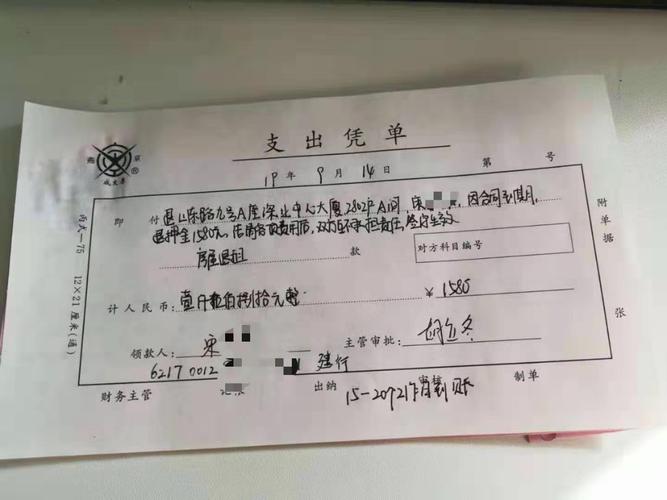 支出凭单
燕京
成文厚
19 年 9 月 14 日 第 号
丙式-75 12×21厘米(通)
即付 退山东路九号A座深业中心大厦2802户A间,宋 因合同到期
退押金1580元, 结清各项费用后,双方互不承担责任,签字生效
房屋退租 款
对方科目编号
附单据 张
计人民币: 壹仟伍佰捌拾元整 ¥1580
领款人: 宋 主管审批:
6217 0012 建行
财务主管 记账 出纳 审核 制单
15-20